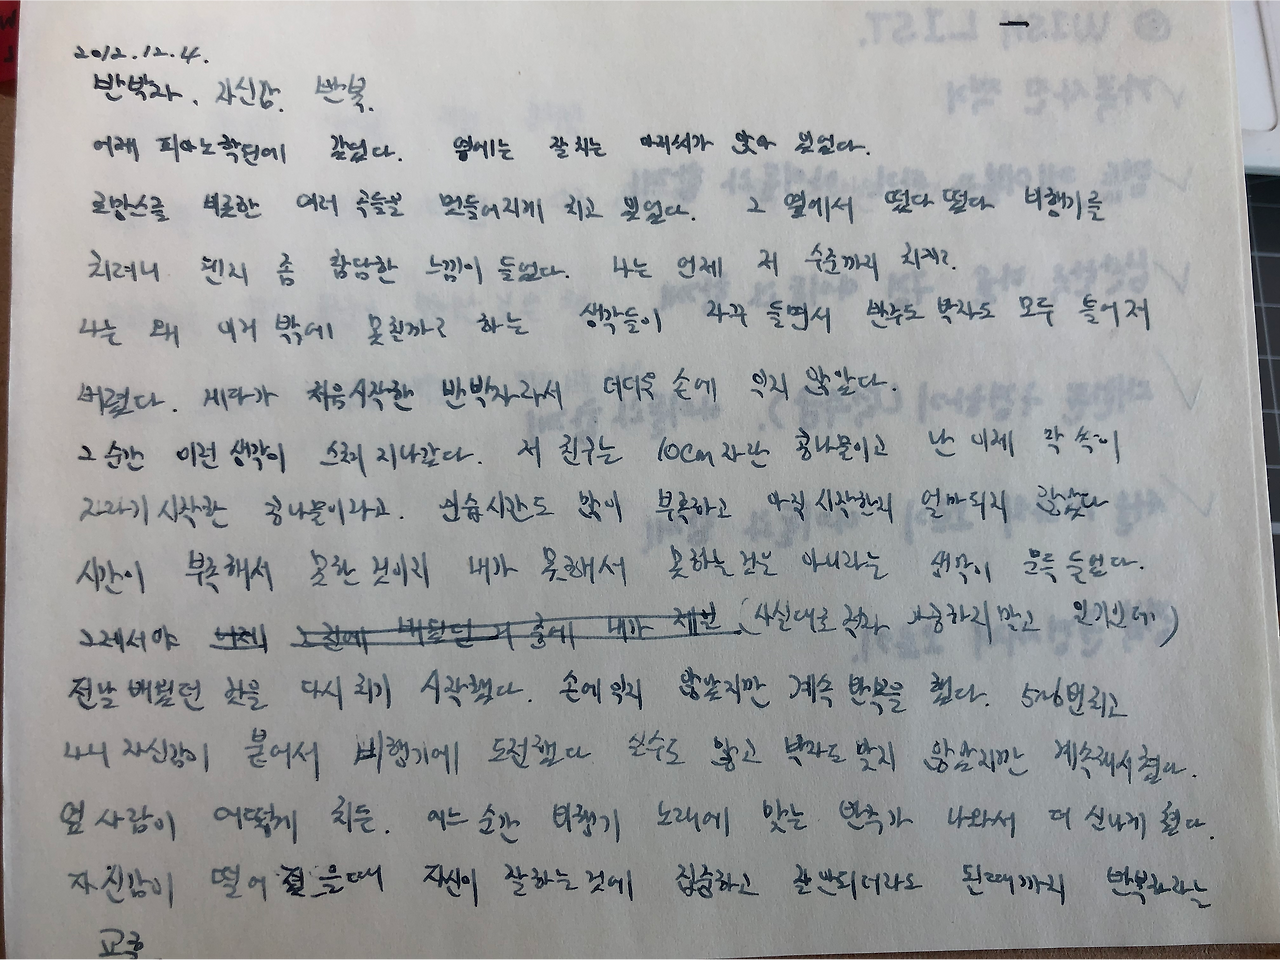 2012.12.4.
반박자. 자신감. 반복.
어제 피아노학원에 갔었다. 옆에는 잘 치는 아저씨가 앉아 있었다.
로망스를 비롯한 여러 곡들을 멋들어지게 치고 있었다. 그 옆에서 떴다 떴다 비행기를
치려니 웬지 좀 황당한 느낌이 들었다. 나는 언제 저 수준까지 치지?
나는 왜 이거 밖에 못칠까? 하는 생각들이 자꾸 들면서 반주도 박자도 모두 틀어져
버렸다. 게다가 처음 시작한 반박자라서 더더욱 손에 익지 않았다.
그 순간 이런 생각이 스쳐 지나갔다. 저 친구는 10cm 자란 콩나물이고 난 이제 막 싹이
자라기 시작한 콩나물이라고. 연습시간도 많이 부족하고 아직 시작한지 얼마되지 않았다
시간이 부족해서 못한 것이지 내가 못해서 못하는 것은 아니라는 생각이 문득 들었다.
그래서야 내가 제일 (사실대로 적자 과장하지 말고 일기인데)
전날 배웠던 곳을 다시 치기 시작했다. 손에 익지 않았지만 계속 반복을 했다. 5~6번 치고
나니 자신감이 붙어서 비행기에 도전했다 실수도 많고 박자도 맞지 않았지만 계속해서 쳤다.
옆 사람이 어떻게 치든. 어느 순간 비행기 노래에 맞는 반주가 나와서 더 신나게 쳤다.
자신감이 떨어졌을때 자신이 잘하는 것에 집중하고 잘 안되더라도 될때까지 반복하라는
교훈